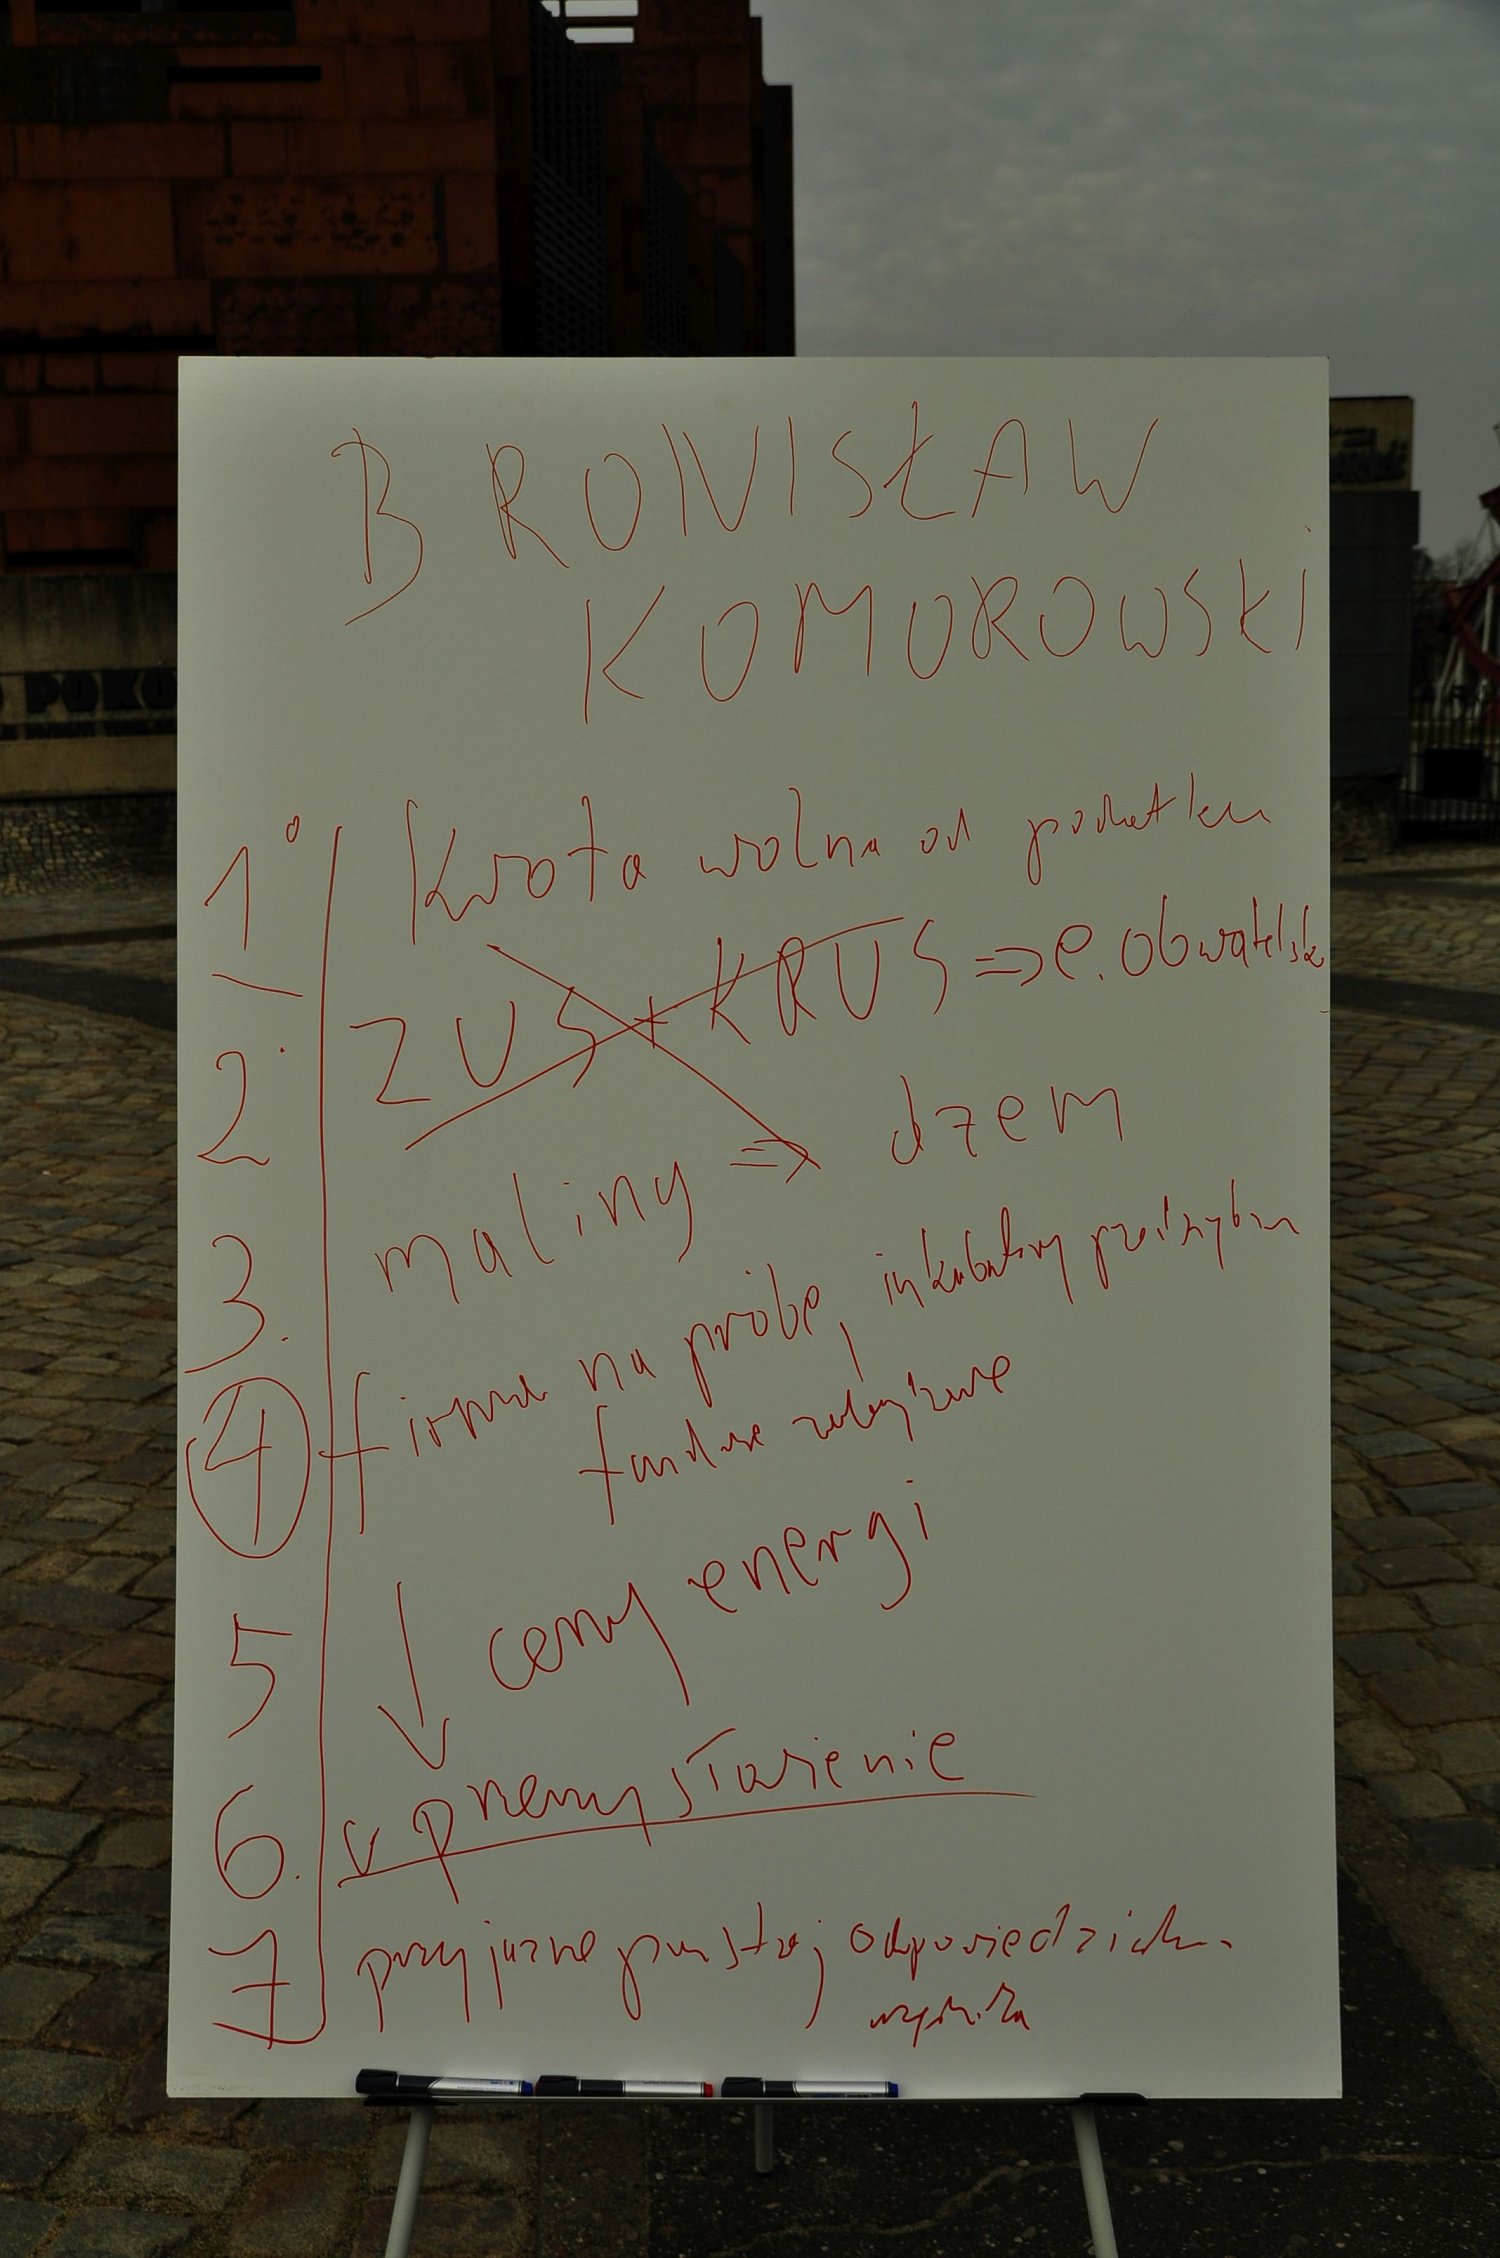 POKO
BRONISŁAW
KOMOROWSKI
1° Kwota wolna od podatku
2. ZUS + KRUS => e. obywatelska
3. maliny => dżem
4 firma na próbę, inkubatory
fundusze zalążkowe
5 ceny energi
6. uprzemysłowienie
7 przyjazne państwo, odpowiedzialn.